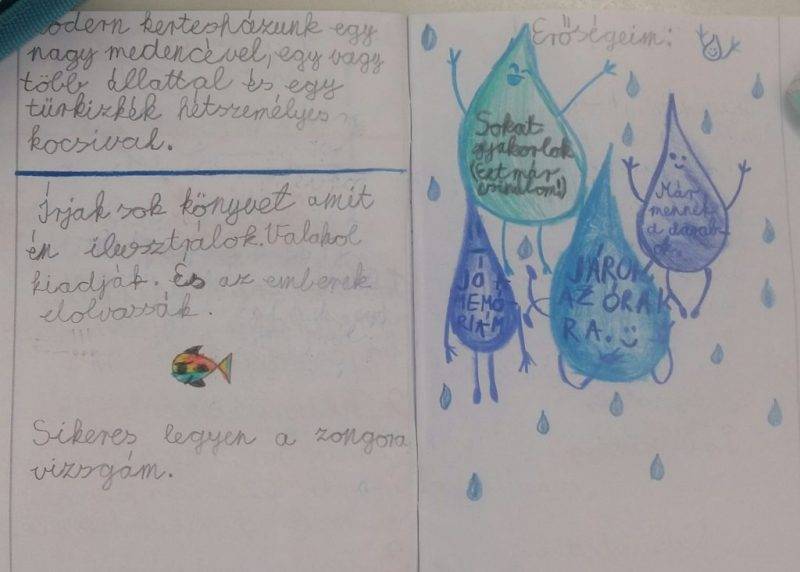 modern kertesházunk egy
nagy medencével, egy vagy
több állattal és egy
türkizkék hétszemélyes
kocsival.
Írjak sok könyvet amit
én ilusztrálok. Valahol
kiadják. És az emberek
elolvassák.
Sikeres legyen a zongora
vizsgám.
Erősségeim:
Sokat
gyakorlok
(ezt már
csinálom!)
Már
mennek
a darab-
ok.
JÓ
MEMÓ-
RIÁM
JÁROK
AZ ÓRÁK
RA.